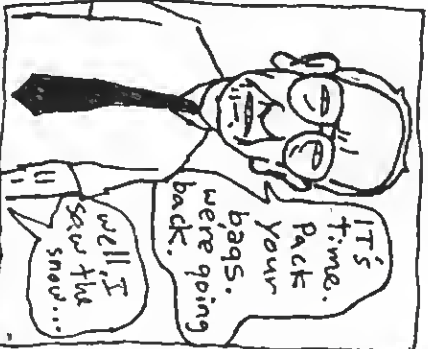 IT's
time.
Pack
your
bags.
were going
back.
well, I
saw the
snow...